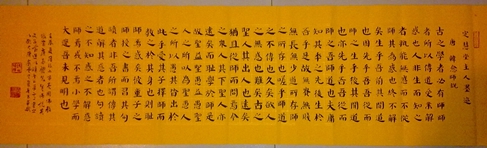 唐 韓愈 師说
古之學者必有師師
者所以傳道受業解
惑也人非生而知之
者孰能無惑惑而不從
師其為惑也終不解矣
生乎吾前其聞道也
固先乎吾吾從而師
之生乎吾後其聞道
也亦先乎吾吾從而
師之吾師道也夫庸
知其年之先後生於
吾乎是故無貴無賤
無長無少道之所存
師之所存也嗟乎師道
之不傳也久矣欲人
之無惑也難矣古之
聖人其出人也遠矣
猶且從師而問焉今
之眾人其下聖人也亦
遠矣而恥學於師是
故聖益聖愚益愚聖
人之所以為聖愚人
之所以為愚其皆出於
此乎愛其子擇師而
教之於其身也則恥
師焉惑矣彼童子之
師授之書而習其句
讀者非吾所謂傳其
道解其惑者也句讀
之不知惑之不解或
師焉或不焉小學而
大遺吾未見其明也